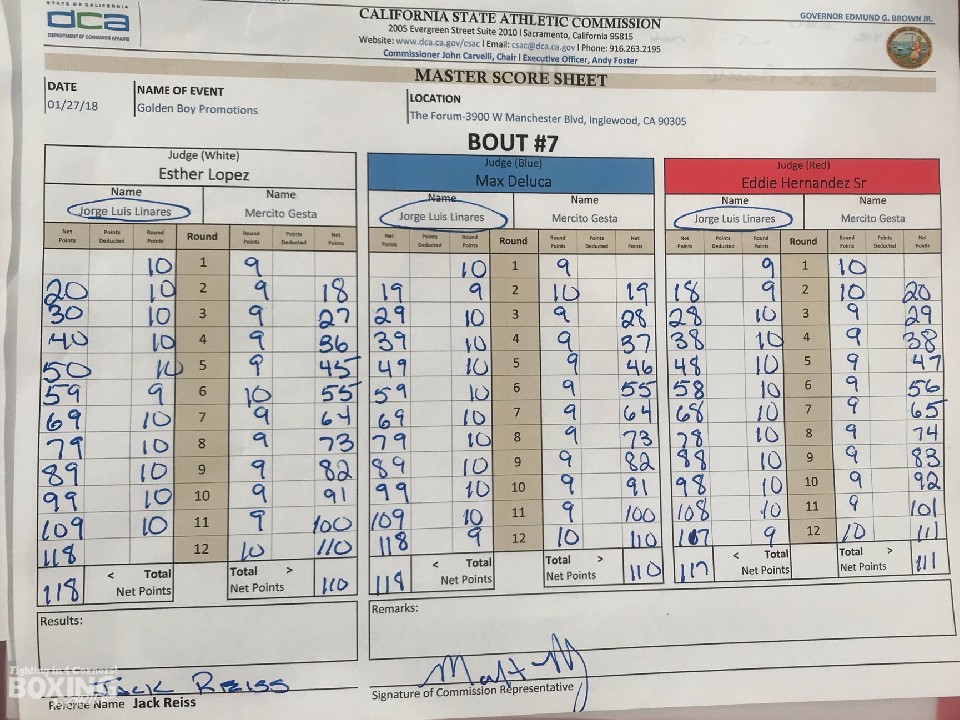 STATE OF CALIFORNIA
dca
DEPARTMENT OF CONSUMER AFFAIRS
CALIFORNIA STATE ATHLETIC COMMISSION
GOVERNOR EDMUND G. BROWN JR.
2005 Evergreen Street Suite 2010 | Sacramento, California 95815
Website: www.dca.ca.gov/csac | Email: csac@dca.ca.gov | Phone: 916.263.2195
Commissioner John Carvelli, Chair | Executive Officer, Andy Foster
MASTER SCORE SHEET
DATE NAME OF EVENT LOCATION
01/27/18 Golden Boy Promotions The Forum-3900 W Manchester Blvd, Inglewood, CA 90305
BOUT #7
Judge (White) Judge (Blue) Judge (Red)
Esther Lopez Max Deluca Eddie Hernandez Sr
Name Name Name Name Name Name
Jorge Luis Linares Mercito Gesta Jorge Luis Linares Mercito Gesta Jorge Luis Linares Mercito Gesta
Net Points Points Deducted Round Points Round Round Points Points Deducted Net Points Net Points Points Deducted Round Points Round Round Points Points Deducted Net Points Net Points Points Deducted Round Points Round Round Points Points Deducted Net Points
10 1 9 10 1 9 9 1 10
20 10 2 9 18 19 9 2 10 19 18 9 2 10 20
30 10 3 9 27 29 10 3 9 28 28 10 3 9 29
40 10 4 9 36 39 10 4 9 37 38 10 4 9 38
50 10 5 9 45 49 10 5 9 46 48 10 5 9 47
59 9 6 10 55 59 10 6 9 55 58 10 6 9 56
69 10 7 9 64 69 10 7 9 64 68 10 7 9 65
79 10 8 9 73 79 10 8 9 73 78 10 8 9 74
89 10 9 9 82 89 10 9 9 82 88 10 9 9 83
99 10 10 9 91 99 10 10 9 91 98 10 10 9 92
109 10 11 9 100 109 10 11 9 100 108 10 11 9 101
118 12 10 110 118 9 12 10 110 117 9 12 10 111
118 < Total Net Points Total > Net Points 110 118 < Total Net Points Total > Net Points 110 117 < Total Net Points Total > Net Points 111
Results: Remarks:
JACK REISS
Referee Name Jack Reiss
Signature of Commission Representative
Fighting in 4 Corners!
BOXING